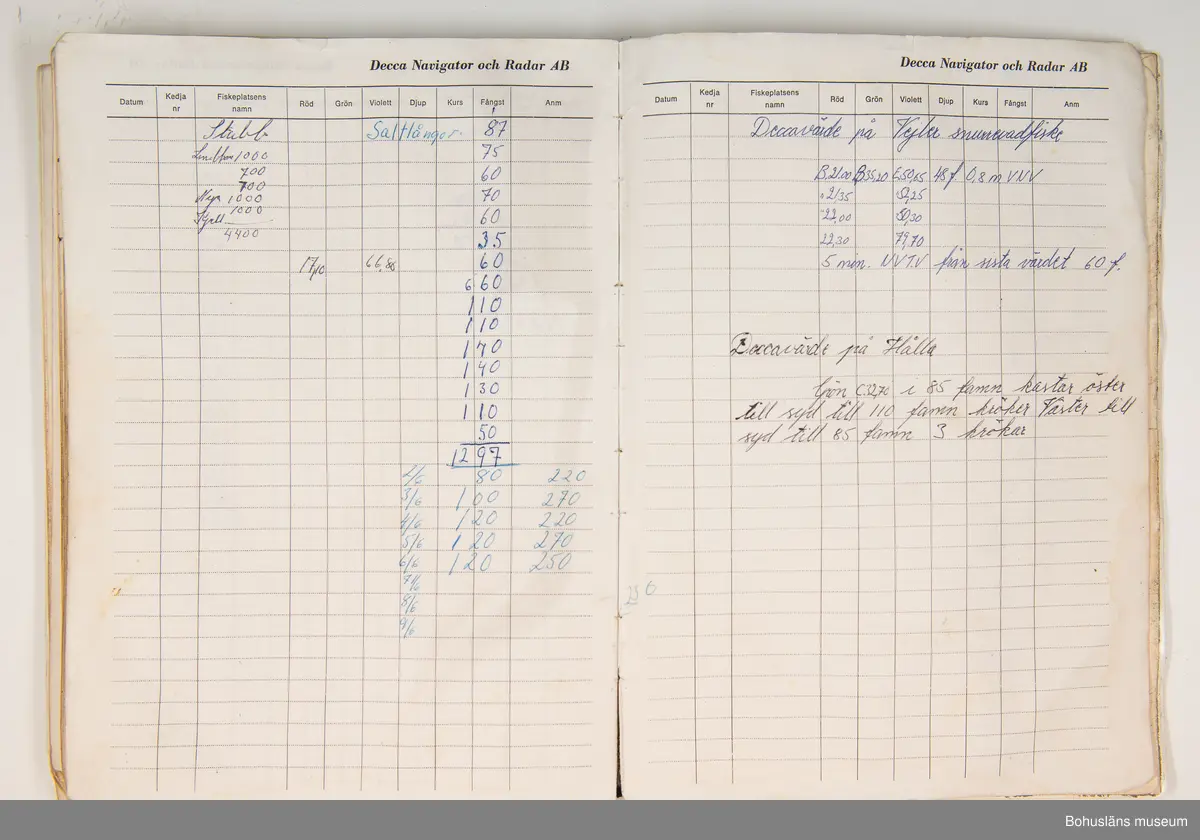 Decca Navigator och Radar AB
Datum Kedja nr Fiskeplatsens namn Röd Grön Violett Djup Kurs Fångst Anm
Stabb Saltlångor. 87
1000 75
700 60
700
1000 70
1000 60
4400 35
17,10 66,80 60
6 60
110
110
140
140
130
110
50
1297
2/6 80 220
3/6 100 270
4/6 120 220
5/6 120 270
6/6 120 250
7/6
8/6
9/6
Decca Navigator och Radar AB
Datum Kedja nr Fiskeplatsens namn Röd Grön Violett Djup Kurs Fångst Anm
Deccavärde på snurrevadfiske
B.21.00 B35,20 48 f. 0,8 m V.N.V
21,35
22,00
22,30 79,70
5 min. från sista värdet 60 f.
Deccavärde på Hålla
i 85 famn kastar öster
till syd till 110 famn kröker Väster till
syd till 85 famn 3 krökar
Bohusläns museum